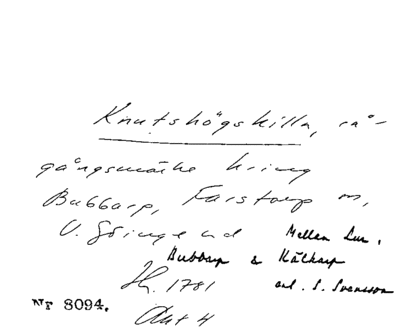 Knutshögskilla, rå-
gångsmärke kring
Bubbarp, Farstorp m,
V. Göinge hd Mellan Lur,
Bubbarp & Kälkarp
Jk. 1781 enl. S. Svensson
Nr 8094. Akt 4